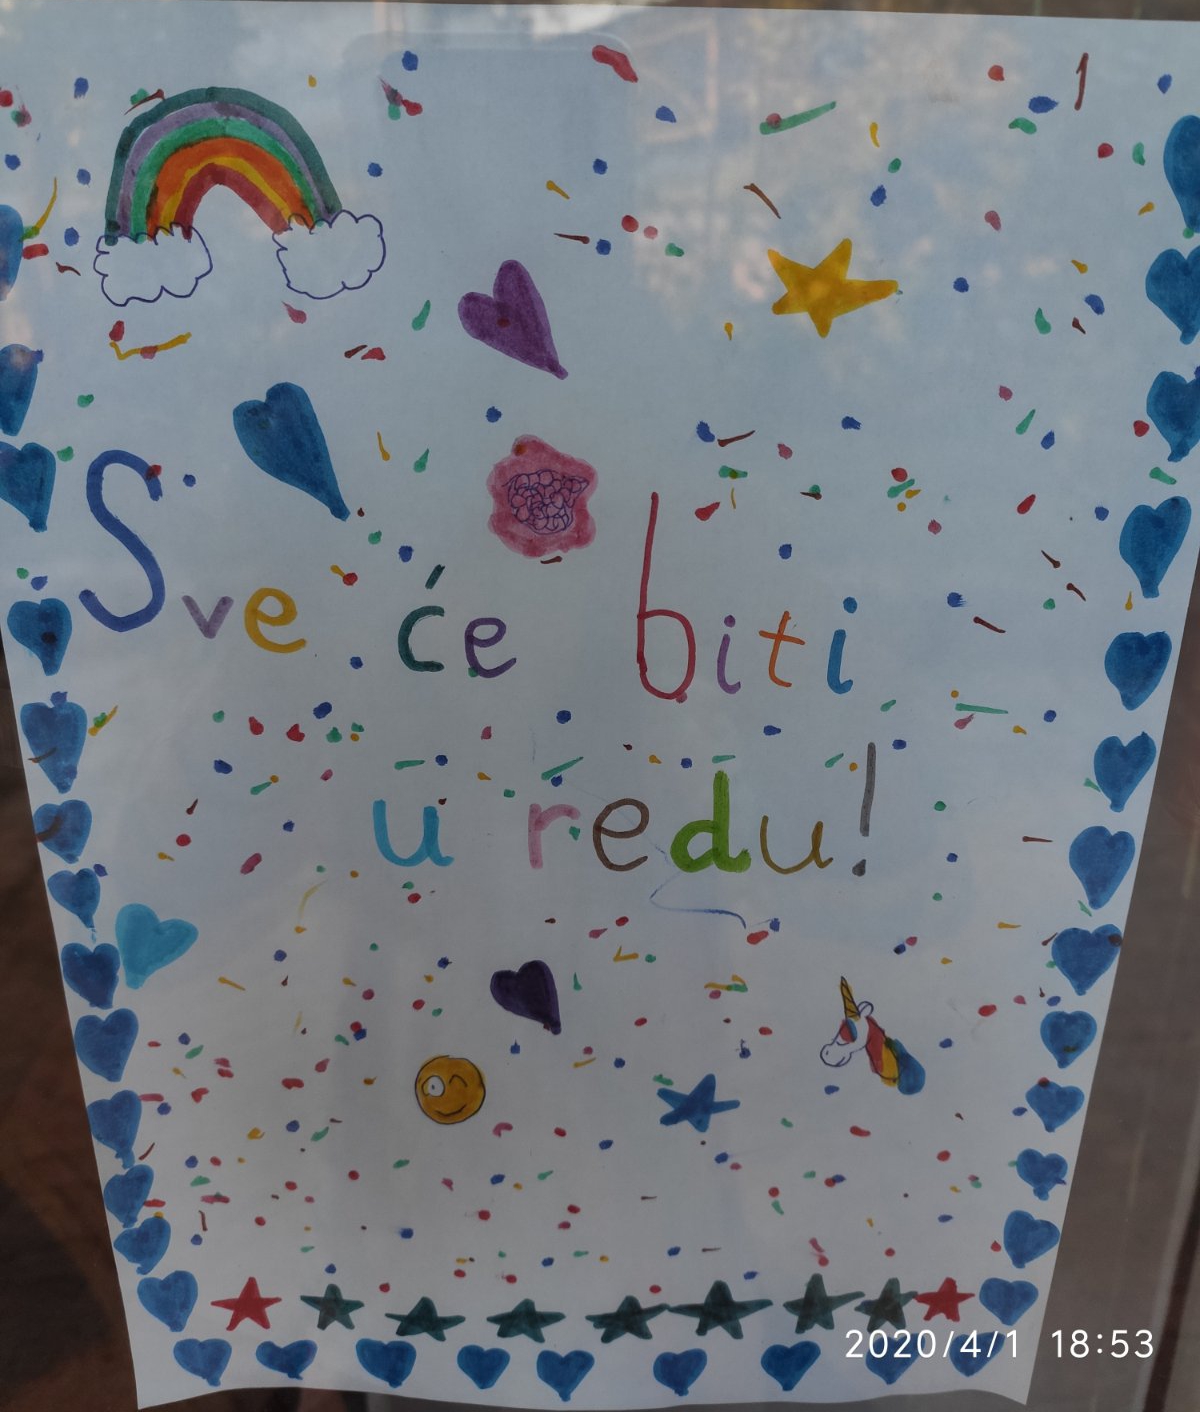 Sve će biti
u redu!
2020/4/1 18:53